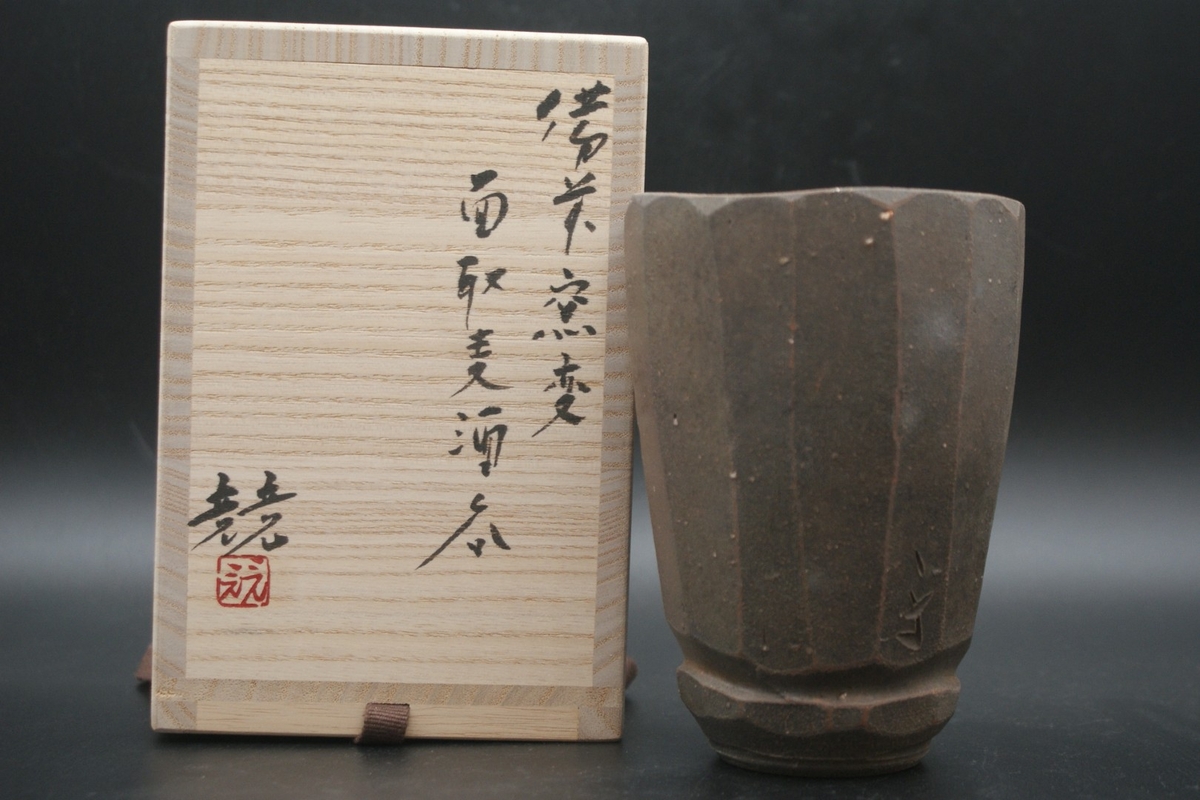 備前窯変
面取麦酒呑
競